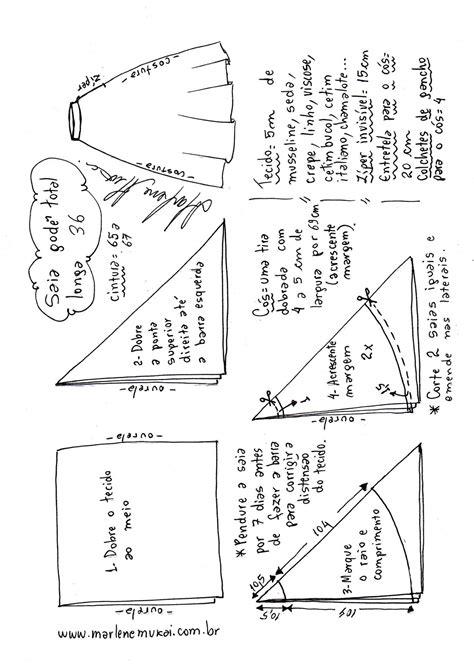 www.marlenemukai.com.br
ourela
1- Dobre o tecido
ao meio
ourela
ourela
2- Dobre
a ponta
superior
direita até
a barra esquerda
Saia godê total
longa 36
cintura= 65 a
67
Marlene Mukai
zíper
costura
costura
*Pendure a saia
por 7 dias antes
de fazer a barra
para corrigir a
distensão
do tecido.
10,5
104
10,5
104
3-Marque
o raio e
comprimento
Cós= uma tira
dobrada com
4 a 5 cm de
largura por 69cm
(acrescente
margem).
4- Acrescente
margem
2x
1
1,5
ourela
* Corte 2 saias iguais e
emende nas laterais.
Tecido= 5m de
musseline, seda,
crepe, linho, viscose,
cetim bucol, cetim
italiano, chamalote...
Zíper invisível= 15cm
Entretela para o cós=
20 cm
Colchetes de gancho
para o cós= 4